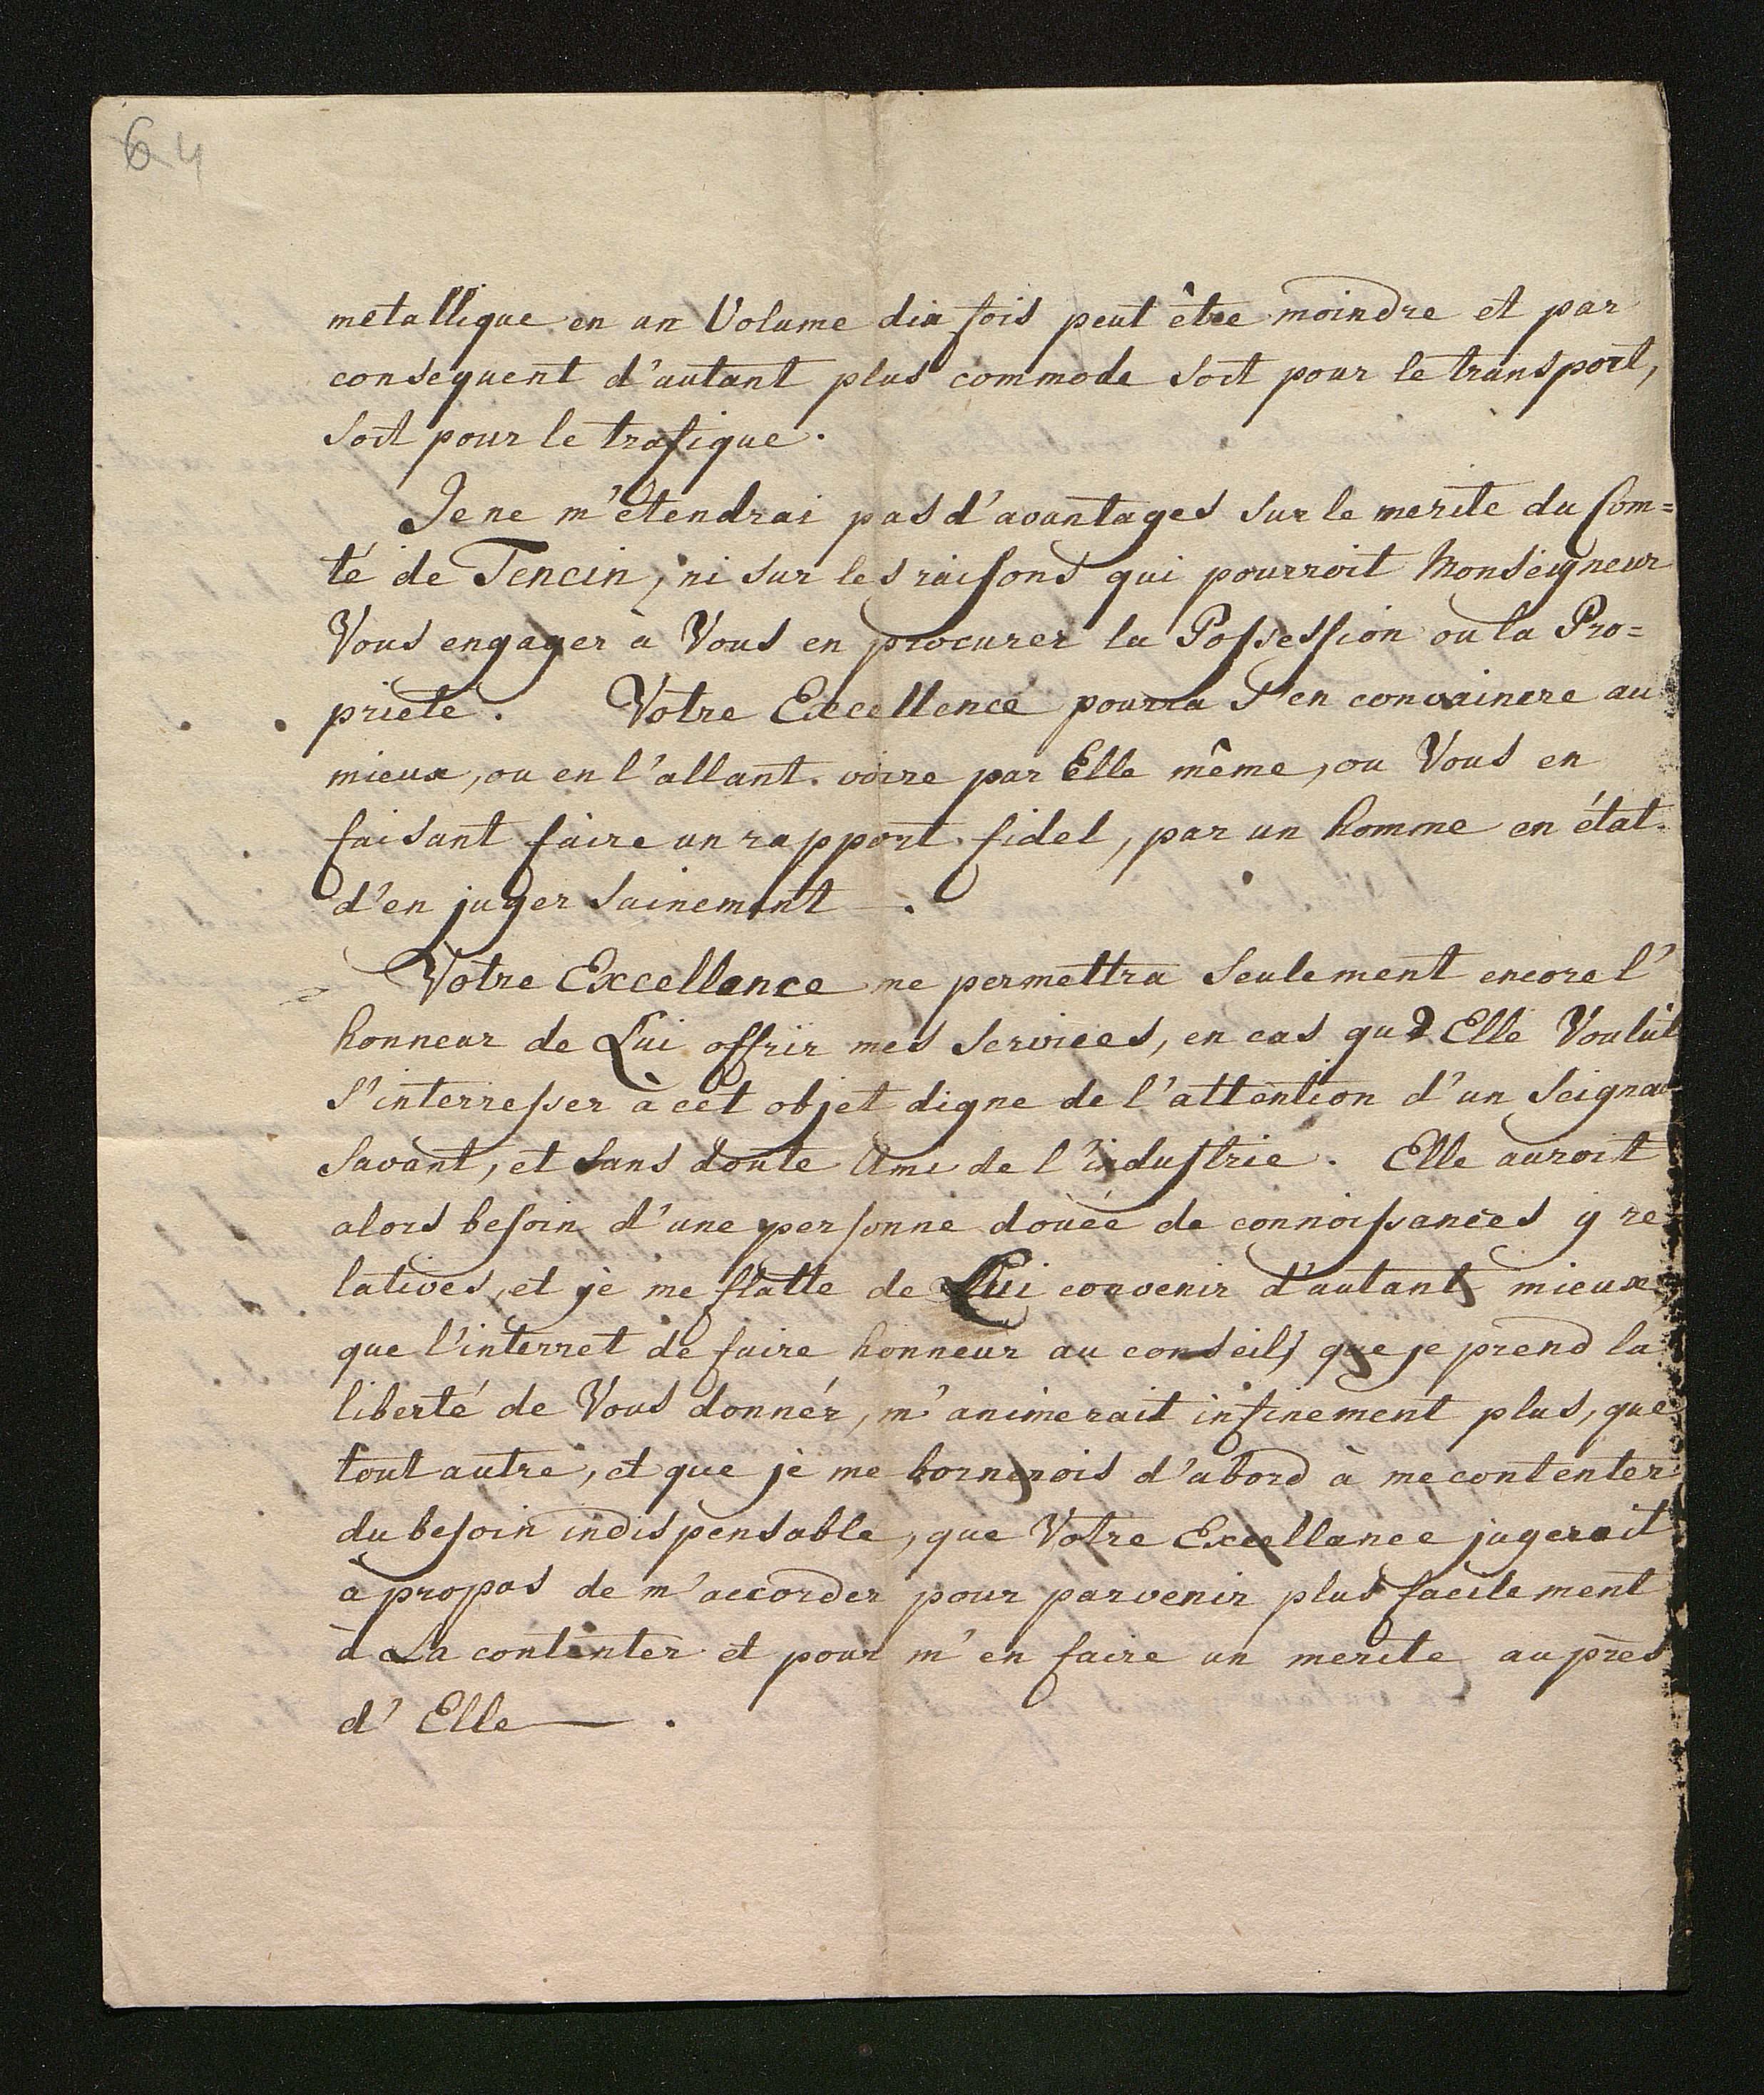 6 4
metallique en un Volume dix fois peut être moindre et par
consequent d'autant plus commode soit pour le transport,
soit pour le trafique.
Je ne m'étendrai pas d'avantages sur le merite du Com=
té de Tencin, ni sur les raisons qui pourroit Monseigneur
Vous engager à Vous en procurer la Possession ou la Pro=
prieté. Votre Excellence pourra S'en convaincre au
mieux, ou en l'allant voire par Elle même, ou Vous en
faisant faire un rapport fidel, par un homme en état
d'en juger sainement.
Votre Excellence me permettra seulement encore l'
honneur de Lui offrir mes services, en cas qu'Elle Voulut
s'interresser à cet objet digne de l'attention d'un Seigneur
savant, et sans doute Ami de l'industrie. Elle auroit
alors besoin d'une personne douée de connoissances y re
latives, et je me flatte de Lui convenir d'autant mieux
que l'interret de faire honneur au conseil, que je prend la
liberté de Vous donner, m'animerait infinement plus, que
tout autre, et que je me bornerois d'abord à me contenter
du besoin indispensable, que Votre Excellance jugerait
à propos de m'accorder pour parvenir plus facilement
à La contenter et pour m'en faire un merite auprès
d'Elle.